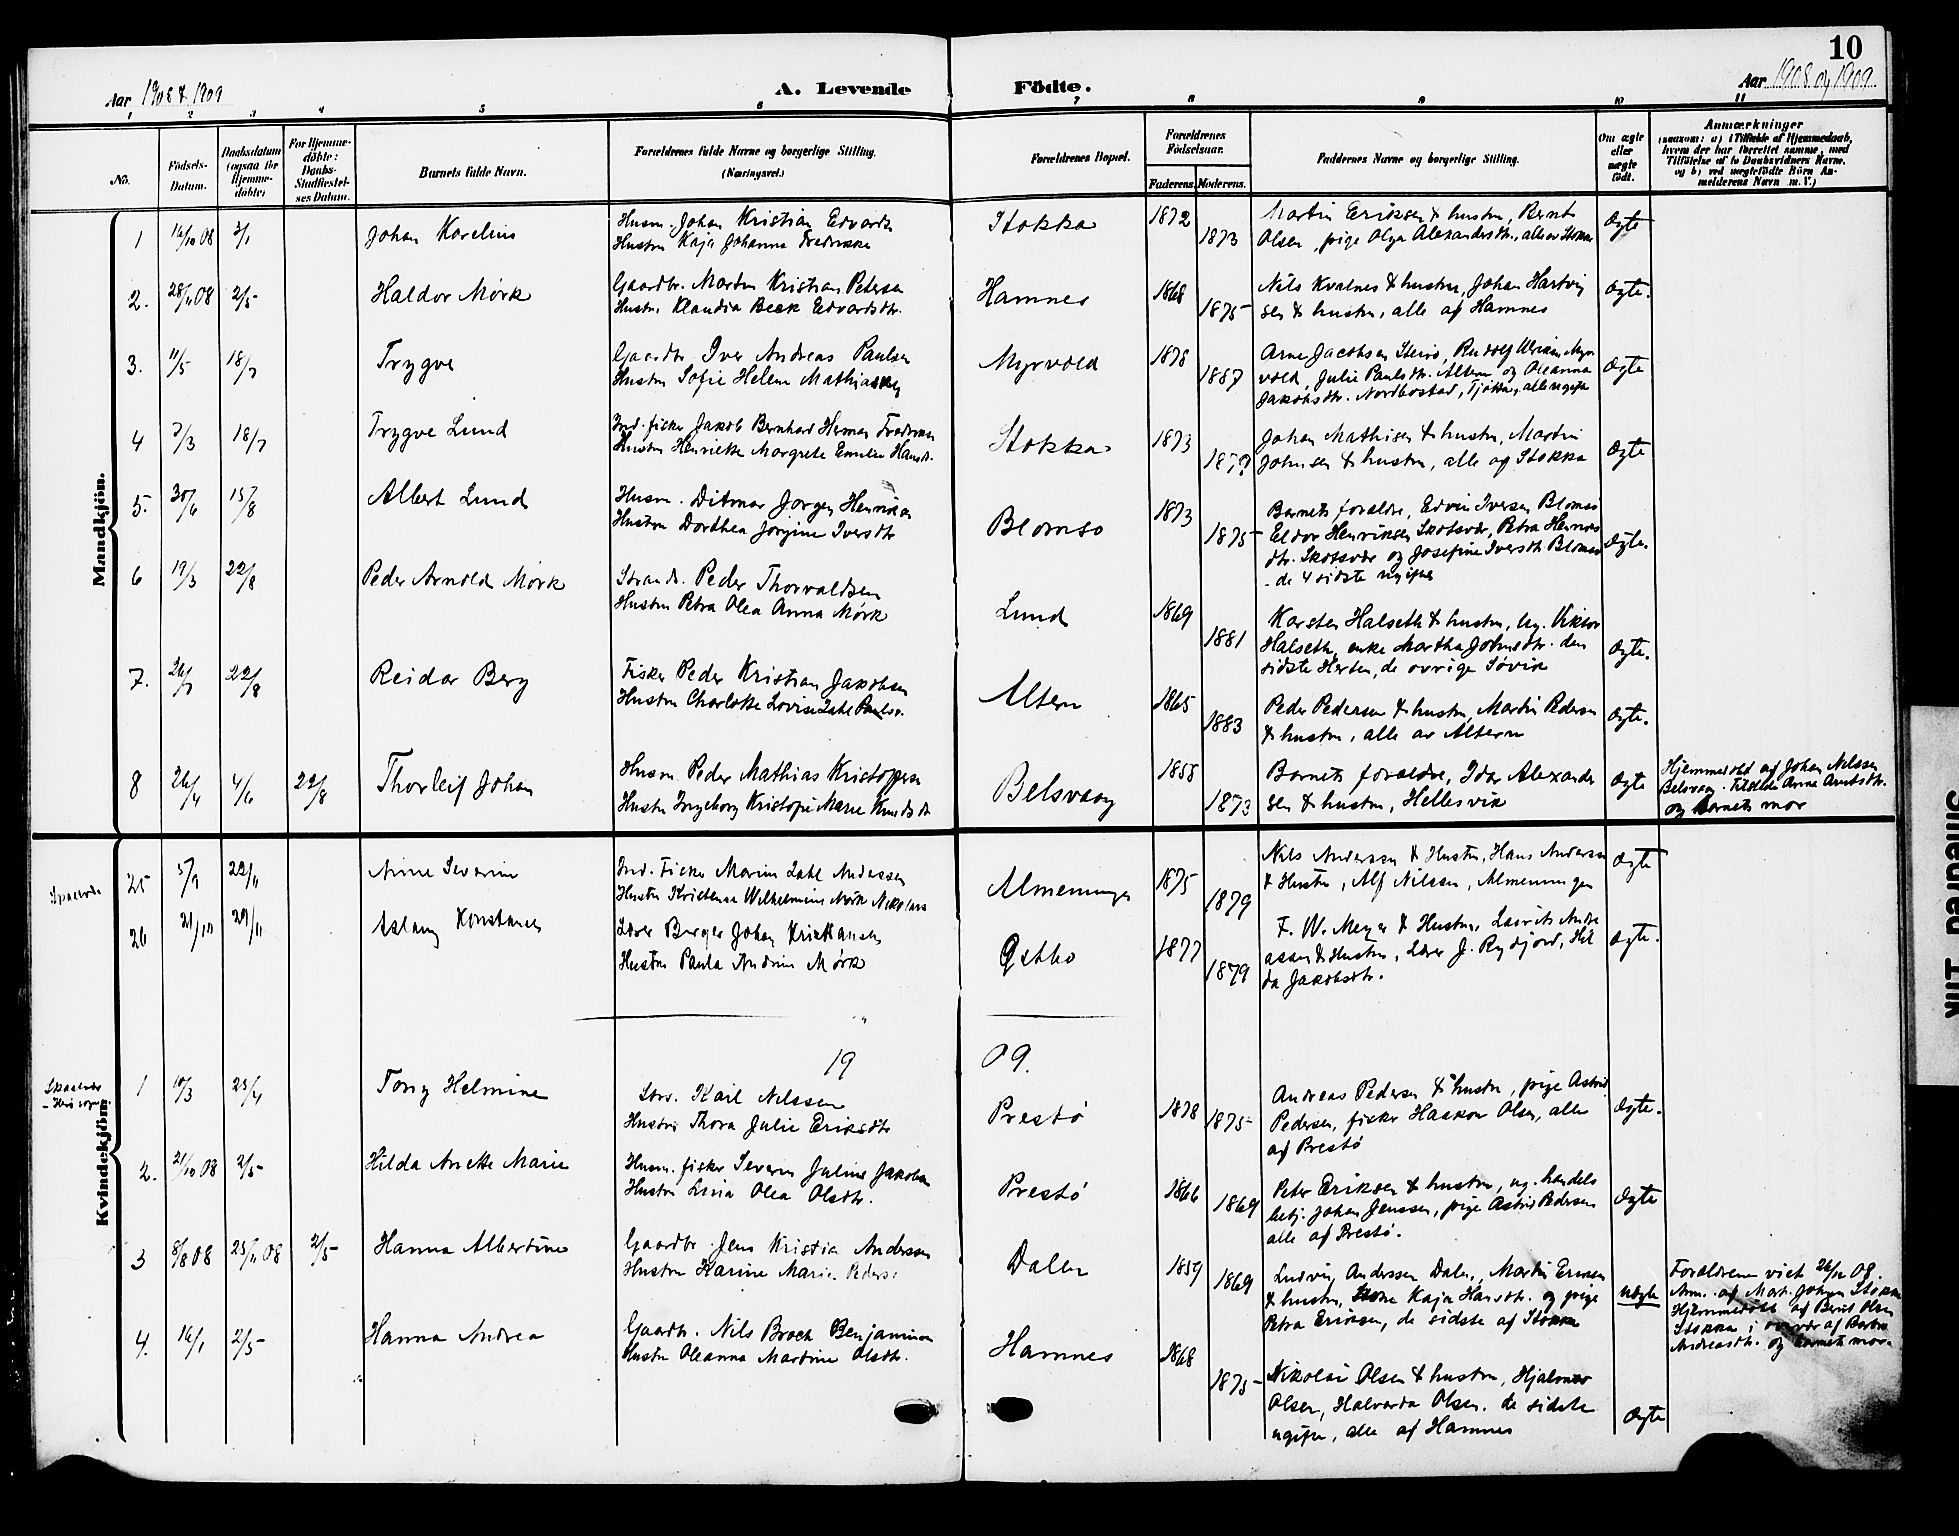 10
Aar 1908 & 1909
A. Levende Födte.
Aar 1908 og 1909
1 2 3 4 5 6 7 8 9 10 11
No.
Födsels-
Datum.
Daabsdatum
(ogsaa for
Hjemme-
döbte)
For Hjemme-
döbte:
Daabs-
Stadfæstel-
ses Datum.
Barnets fulde Navn.
Forældrenes fulde Navne og borgerlige Stilling.
(Næringsvei.)
Forældrenes Bopæl.
Forældrenes
Födselsaar.
Faderens. Moderens.
Faddernes Navne og borgerlige Stilling.
Om ægte
eller
uægte
födt.
Anmærkninger
(saasom: a) i Tilfælde af Hjemmedaab,
hvem der har forrettet samme, med
Tilföielse af to Daabsvidners Navne,
og b) ved uægtefödte Börn An-
melderens Navn m. V.)
Mandkjön.
1 16/10 08 3/1 Johan Karelius
Husm. Johan Kristian Edvards
Hustru Kaja Johanna Fredrikke
Stokka 1872 1873
Martin Eriksen & hustru, Bernt
Olsen, pige Olga Alexandersdtr., alle av Stokka
Ægte
2. 28/11 08 2/5 Haldor Mørk
Gaardbr. Martin Kristian Petersen
Hustru Klaudia Beck Edvardsdtr.
Hamnes 1868 1875
Nils Kvalnes & hustru, Johan Hartvig
sen & hustru, alle af Hamnes
Ægte.
3. 11/5 18/7 Trygve
Gaardbr. Iver Andreas Paulsen
Hustru Sofie Helene Mathias
Myrvold 1878 1887
Arne Jacobsen Steiro, Rudolf Myr
vold, Julie Paulsdtr. Altern og Oleanna
Jakobsdtr. Nordbostad, Tjøtta, alle ugifte
Ægte
4 7/3 18/7 Trygve Lund
Ind. fisker Jakob Bernhard Herman Fredriksen
Hustru Henrikke Margrete Emilie Hansdt.
Stokka 1873
Johan Mathisen & hustru, Martin
Johnsen & hustru, alle af Stokka
Ægte
5. 30/6 15/8 Albert Lund
Husm. Ditmar Jørgen Henriksen
Hustru Dorthea Jørgine Iversdtr
Blomsø 1873 1875
Barnets forældre, Edvin Iversen Blomsø
Eldor Henriksen Skotsvær, Petra Henriks
dtr. Skotsvær og Josefine Iversdtr Blomsø
- de 4 sidste ugifte
Ægte.
6 19/3 22/8 Peder Arnold Mørk
Strands. Peder Thorvaldsen
Hustru Petra Olea Anna Mørk
Lund 1869 1881
Karsten Halseth & hustru, ug. Viktor
Halseth, enke Martha Johnsdtr. den
sidste Herten, de øvrige Søvik
Ægte.
7. 26/7 22/8 Reidar Berg
Fisker Peder Kristian Jakobsen
Hustru Charlotte Lovise Zahl Paulsd.
Altern 1865 1883
Peder Pedersen & hustru, Martin Pedersen
& hustru, alle av Altern
Ægte.
8 26/4 4/6 22/8 Thorleif Johan
Husm Peder Mathias Kristoffersen
Hustru Ingeborg Kristofa Marie Knudsdt
Belsvaag 1858 1873
Barnets forældre, Idar Alexander
sen & hustru, Hellesvik
Ægte
Hjemmedøbt af Johan Nilssen
Belsvaag. Tilstede Anna Arntsdtr.
og barnets mor
Kvindekjön.
25 5/9 22/11 Anne Severine
Ind. Fisker Marius Zahl Anderssen
Hustru Kristense Wilhelmine Mørk
Almenninge 1875 1879
Nils Anderssen & Hustru, Hans Anderssen
& Hustru, Alf Nilssen, Almenningen
Ægte
26 21/10 29/11 Aslaug Konstance
Lærer Berger Johan Kristiansen
Hustru Paula Andrine Mørk
Østbø 1877 1879
F. W. Meyer & Hustru, Laurits Andre
assen & Hustru, Lærer J. Rydfjord, Hil
da Jakobsdtr.
Ægte.
19 09.
Skaalvær
- Herø sogn
1 10/3 25/4 Tony Helmine
Karl Nilssen
Hustru Thora Julie Eriksdtr
Prestø 1878 1875
Andreas Pedersen & hustru, pige Astrid
Pedersen, fisker Haakon Olsen, alle
af Prestø
Ægte.
2. 21/10 08 2/5 Hilda Anette Marie
Husm. fisker Severin Julius Jakobsen
Hustru Lina Olea Olsdtr.
Prestø 1866 1869
Peter Eriksen & hustru, ug. handels
betj. Johan Jenssen, pige Astrid Pedersen
alle af Prestø.
Ægte
3 8/8 08 25/11 08 2/5 Hanna Albertine
Gaardbr. Jens Kristian Anderssen
Hustru Karine Marie Peders
Dalen 1859 1869
Ludvig Anderssen Dalen, Martin Eriksen
& hustru, Kaja Hansdtr. og pige
Petra Eriksen, de sidste af Stokka
uægte
Forældrene viet 26/12 08.
Anm. af Mart. Johan Stokka
Hjemmedøbt af Bernt Olsen
Stokka i overvær af
Andreasdtr. og barnets mor.
4. 16/1 2/5 Hanna Andrea
Gaardbr. Nils Broch Benjaminsen
Hustru Oleanna Martine Olsdtr.
Hamnes 1868 1875
Nikolai Olsen & hustru, Hjalmar
Olsen, Halvarda Olsen. de sidste
ugifte, alle af Hamnes
Ægte